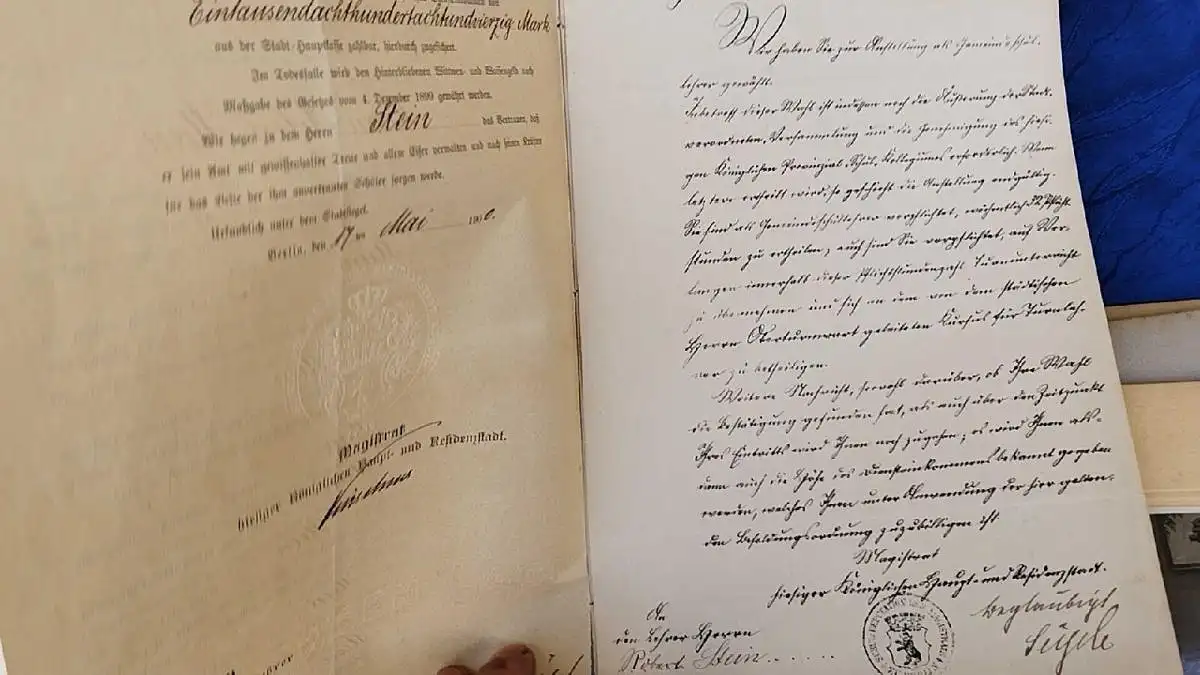 Eintausendachthundertachtundvierzig Mark
aus der Stadt-Hauptkasse zahlbar, hierdurch zugesichert.
Im Todesfalle wird den Hinterbliebenen Wittwen- und Waisengeld nach
Maßgabe des Gesetzes vom 4. Dezember 1899 gewährt werden.
Wir hegen zu dem Herrn Stein das Vertrauen, daß
er sein Amt mit gewissenhafter Treue und allem Eifer verwalten und nach seinen Kräften
für das Beste der ihm anvertrauten Schüler sorgen werde.
Urkundlich unter dem Stadtsiegel.
Berlin, den 17ten Mai 1900.
Magistrat
hiesiger Königlichen Haupt- und Residenzstadt.
Kirschner
Wir haben Sie zur Anstellung als Gemeindeschul-
lehrer gewählt.
Betreff dieser Wahl ist indessen noch die Äußerung der Stadt-
verordneten-Versammlung und die Genehmigung des hiesi-
gen Königlichen Provinzial-Schul-Kollegiums erforderlich. Wenn
letztere ertheilt wird, so geschieht die Anstellung endgültig.
Sie sind als Gemeindeschullehrer verpflichtet, wöchentlich 32 Pflicht-
stunden zu ertheilen, auch sind Sie verpflichtet, auf Ver-
langen innerhalb dieser Pflichtstundenzahl Turnunterricht
zu übernehmen und sich an dem von dem städtischen
Herrn Oberturnwart geleiteten Kursus für Turnleh-
rer zu betheiligen.
Weitere Nachricht, sowohl darüber, ob Ihre Wahl
die Bestätigung gefunden hat, als auch über den Zeitpunkt
Ihres Eintritts wird Ihnen noch zugehen; es wird Ihnen als-
dann auch die Höhe des Diensteinkommens bekannt gegeben
werden, welches Ihnen unter Anwendung der hier gelten-
den Besoldungsordnung zuzubilligen ist.
Magistrat
hiesiger Königlichen Haupt- und Residenzstadt.
Beglaubigt
An
den Lehrer Herrn
Robert Stein